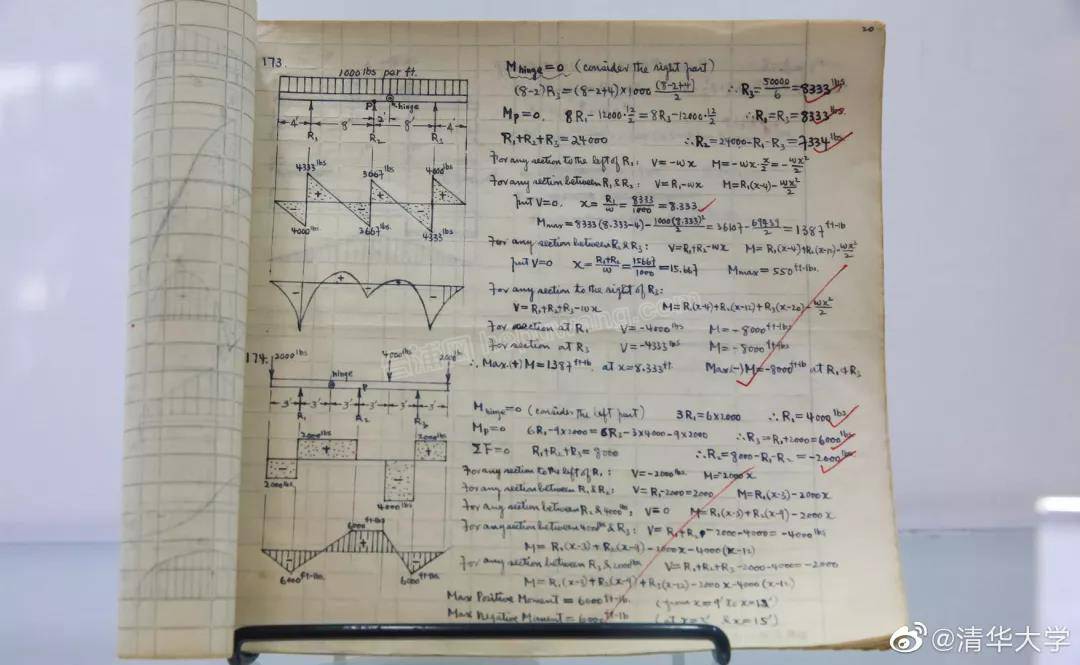 20
173.
1000 lbs per ft.
P
hinge
2'
4' 8' 8' 4'
R₁ R₂ R₃
4333 lbs
3667 lbs
4000 lbs
+ + +
- - -
4000 lbs
3667 lbs
4333 lbs
+ +
- - -
M hinge = 0 (consider the right part)
(8-2)R₃ = (8-2+4)×1000 (8-2+4)/2 ∴ R₃ = 50000/6 = 8333 lbs
Mp = 0. 8R₁ - 12000·12/2 = 8R₃ - 12000·12/2 ∴ R₁ = R₃ = 8333 lbs.
R₁+R₂+R₃ = 24000 ∴ R₂ = 24000-R₁-R₃ = 7334 lbs.
For any section to the left of R₁: V = -wx M = -wx·x/2 = -wx²/2
For any section between R₁ & R₂: V = R₁-wx M = R₁(x-4) - wx²/2
put V=0. x = R₁/w = 8333/1000 = 8.333
Mmax = 8333(8.333-4) - 1000(8.333)²/2 = 36107 - 69439/2 = 1387 ft-lb
For any section between R₂ & R₃: V = R₁+R₂-wx M = R₁(x-4)+R₂(x-12)-wx²/2
put V=0 x = R₁+R₂/w = 15667/1000 = 15.667 Mmax = 550 ft-lbs.
For any section to the right of R₃:
V = R₁+R₂+R₃-10x M = R₁(x-4)+R₂(x-12)+R₃(x-20)-wx²/2
For section at R₁ V = -4000 lbs M = -8000 ft-lbs
For section at R₃ V = -4333 lbs M = -8000 ft-lbs
∴ Max.(+)M = 1387 ft-lb. at x = 8.333 ft. Max(-)M = -8000 ft-lb at R₁ & R₃
174.
2000 lbs
4000 lbs
2000 lb
hinge
P
3' 3' 3' 3' 3' 3'
R₁ R₂ R₃
2000 lbs
2000 lbs
+ +
- -
2000 lbs.
4000 lbs
6000 ft-lbs
+
- -
6000 ft-lbs.
6000 ft-lbs.
M hinge = 0 (consider the left part) 3R₁ = 6×2000 ∴ R₁ = 4000 lbs
Mp = 0 6R₁-9×2000 = 6R₃-3×4000-9×2000 ∴ R₃ = R₁+2000 = 6000 lbs
ΣF = 0 R₁+R₂+R₃ = 8000 ∴ R₂ = 8000-R₁-R₂ = -2000 lbs
For any section to the left of R₁: V = -2000 lbs. M = -2000x
For any section between R₁ & R₂: V = R₁-2000 = 2000 M = R₁(x-3)-2000x
For any section between R₂ & 4000 lbs, V = 0 M = R₁(x-3)+R₂(x-9)-2000x
For any section between 4000 lbs & R₃: V = R₁+R₂-2000-4000 = -4000 lbs
M = R₁(x-3)+R₂(x-9)-2000x-4000(x-12)
For any section between R₃ & 2000 lbs V = R₁+R₂+R₃-2000-4000 = -2000
M = R₁(x-3)+R₂(x-9)+R₃(x-12)-2000x-4000(x-12)
Max Positive Moment = 6000 ft-lb. (from x=9' to x=12')
Max Negative Moment = 6000 ft-lb (at x=3' & x=15')
@清华大学